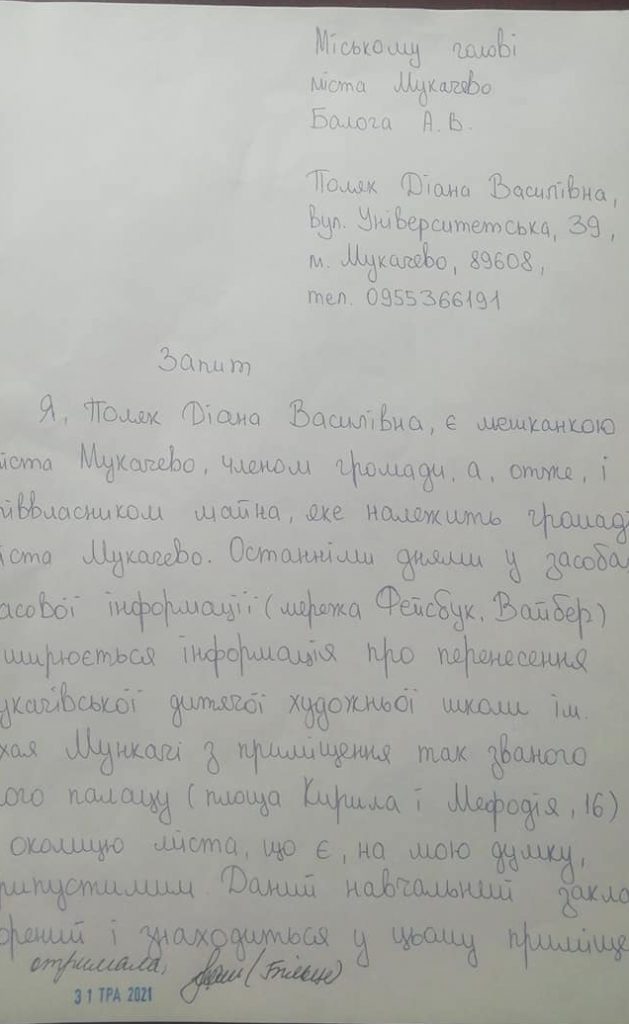 Міському голові
міста Мукачево
Балога А. В.
Поляк Діана Василівна,
вул. Університетська, 39,
м. Мукачево, 89608,
тел. 0955366191
Запит
Я, Поляк Діана Василівна, є мешканкою
іста Мукачево, членом громади, а, отже, і
айна, яке належить громаді
іста Мукачево. Останніми днями у засоба
асової інформації (мережа Фейсбук, Вайбер)
ширюється інформація про перенесення
укачівської дитячої художньої школи ім.
хая Мункачі з приміщення так званого
ого палацу (площа Кирила і Мефодія, 16)
околицю міста, що є, на мою думку,
рипустимим. Даний навчальний закла
орений і знаходиться у цьому приміще
отримала,
31 ТРА 2021